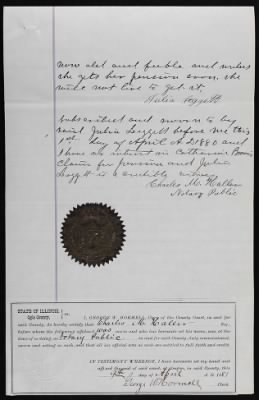 now old and feeble and unless
she gets her pension soon, she
will not live to get it.
Julia Leggett
Subscribed and sworn to by
said Julia Leggett before me this
1st day of April A.D. 1880 and
I have no interest in Catharine
claim for pension and Julia
Leggett is a credible witness
Charles Mc Hallen
Notary Public
STATE OF ILLINOIS, } ss.
Ogle County.
I, GEORGE W. HORMELL, Clerk of the County Court, in and for
said County, do hereby certify that Charles Mc Hallen Esq.,
before whom the foregoing affidavit was
time of so doing, a Notary Public in and for said County, duly commissioned,
sworn and acting as such, and that all his official acts as such are entitled to full faith and credit.
IN TESTIMONY WHEREOF, I have hereunto set my hand and
affixed the seal of said court, at Oregon, in said County, this
day of April A.D. 188
George W Hormell Clerk